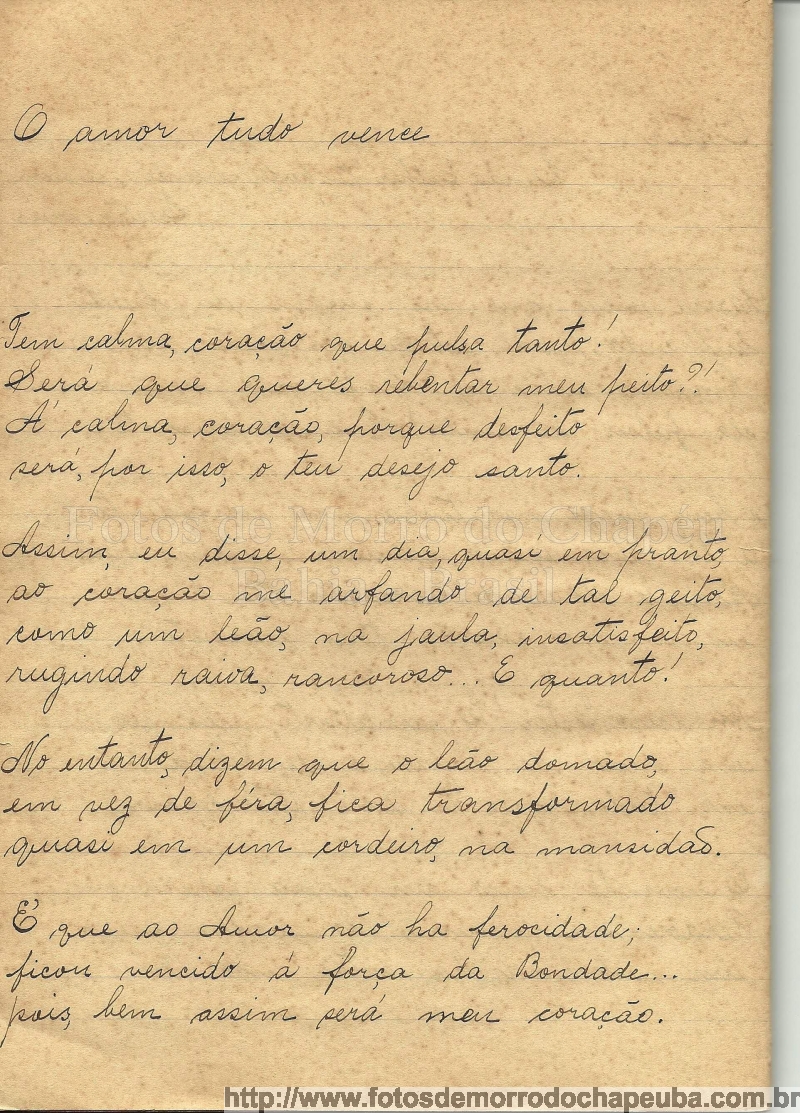 O amor tudo vence
Tem calma, coração que pulsa tanto!
Será que queres rebentar meu peito?!
Á calma, coração, porque desfeito
será, por isso, o teu desejo santo.
Fotos de Morro do Chapéu
Bahia - Brasil
Assim, eu disse, um dia, quasi em pranto,
ao coração me arfando de tal geito,
como um leão, na jaula, insatisfeito,
rugindo raiva, rancoroso... E quanto!
No entanto, dizem que o leão domado,
em vez de féra, fica transformado
quasi em um cordeiro, na mansidão.
É que ao Amor não ha ferocidade;
ficou vencido á força da Bondade...
pois, bem assim será meu coração.
http://www.fotosdemorrodochapeuba.com.br